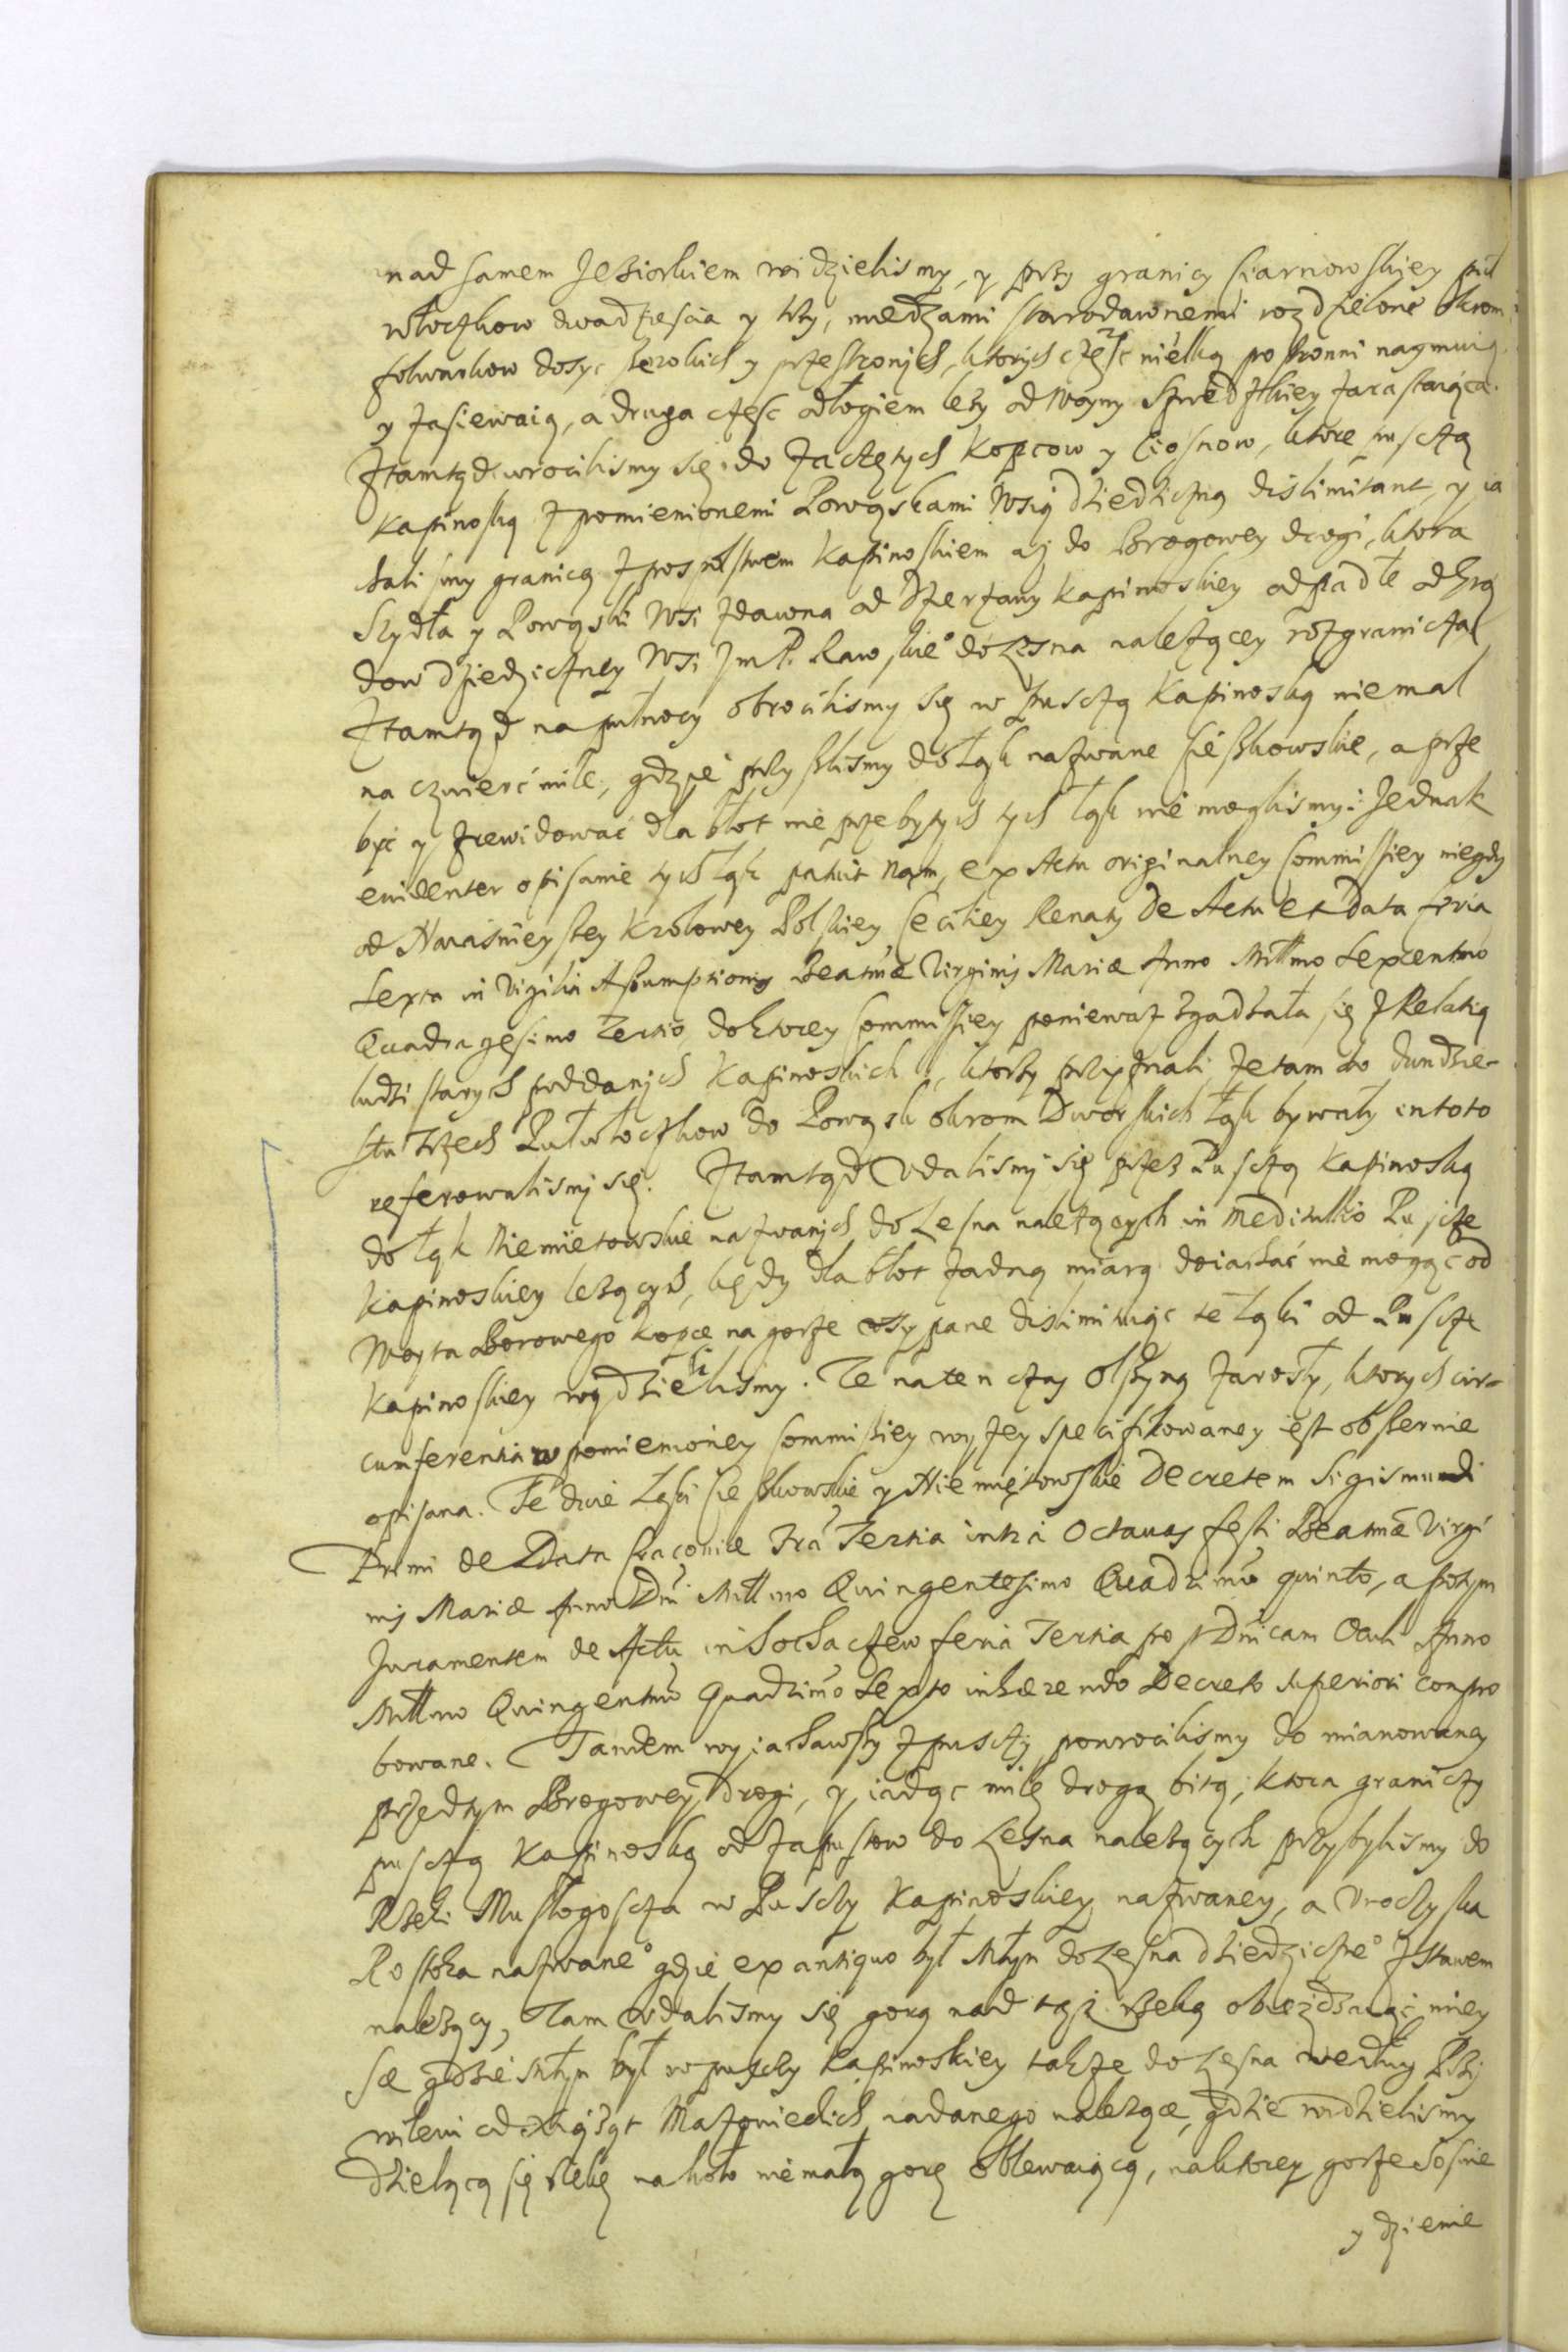 nad samem Jeziorkiem widzielismy, y przy granicy Ciarnowskiey puł
włoczkow dwadziescia y trzy, miedzami starodawnemi rozdzielone okrom
folwarkow dosyc szerokich y przestronych, ktorych część nielką postronni naymuią
y zasiewaią, a druga częsc odłogiem leży od woyny Szwedzkiey zarastaiąca.
Ztamtąd wrocilismy się do zaczętych Kopcow y Ciosnow, ktore puszczą
Kapinoską z pomienionemi Powąskami Wsią dziedziczną dislimitant, y ia
chali smy granicą z pospolstwem Kapinoskiem aż do Brogowey drogi, ktora
Szydła y Powąski Wsi zdawna od Dzierzawy Kapinoskiey odpadłe od
dow dziedziczney Wsi Jm P. Rawskie° do Lesna należącey rozgranicza
Ztamtąd na pułnocy obrocilismy się w puszczą Kapinoską niemal
na czwierć mile, gdzie przyszlismy do Łąk nazwane Cieszkowskie, a prze
być y zrewidować dla błot nie przebytych tych łąk nie moglismy: Jednak
evidenter opisanie tych łąk patuit nam, ex Actu originalney Commissiey niegdy
od Naiasnieyszey Krolowey Polskiey Ceciliey Renaty De Actu et Data feria
Sexta in Vigilia Assumptionis Beatmæ Virginis Mariæ Anno Millmo Sexcentmo
Quadragesimo Tertio, do ktorey Commissiey poniewaz zgadzała się z Relatią
ludzi starych poddanych Kapinoskich, ktorzy przyznali, ze tam do dwudzie-
stu trzech Pułwłoczkow do Powąsk okrom Dworskich łąk bywały in toto
referowalismy się. Ztamtąd Udalismy się przez Puszczą Kapinoską
do łąk Niemietowskie nazwanych do Lesna należących in meditullio Puszcze
Kapinoskiey leżących, kędy dla błot żadną miarą doiachać nie mogąc od
Woyta Borowego kopce na gorze osypane dislimituiąc te łąki od Puszcze
Kapinoskiey wydzielismy. Te na ten czas Olszyną zarosły, ktorych cir-
cumferentia w pomienioney Commissiey wyżey specifikowaney iest obszernie
opisana. Te dwie łąki Cieszkowskie y Niemiętowskie Decretem Sigismundi
Primi de Data Cracoviæ Fra Tertia intra Octavas festi Beatmæ Virgi
nis Mariæ Anno Dni Millmo Quingentesimo Quadzimo quinto, a potym
Juramentem de Actu in Sochaczew feria Tertia po pDnicam Oculi Anno
Millmo Quingentmo Quadzimo Sexto inhærendo Decreto superiori compro
bowane. Tandem wyiachawszy z puszczy powrocilismy do mianowaney
przedtym Brogowey Drogi, y iadąc milę drogą bitą, ktora graniczy
puszczą Kapinoską od Zapustow do Lesna należących przybylismy do
Rzeki Mustogoszcza w Puszczy Kapinoskiey nazwaney, a Uroczyska
Rostoka nazwane° gdzie ex antiquo był Młyn do Lesna dziedziczne° z Stawem
należący, Tam Udalismy się gorą nad tąż Rzeką obiezdzaiąc miey
sce gdzie Młyn był w puszczy Kapinoskiey także do Lesna według Przy
wileiu od Xiążąt Mazowieckich nadanego należące, gdzie widzielismy
dzielącą się rzekę na koło niemałą gorę oblewaiącą, na ktorey gorze Sosnie
y dzienie